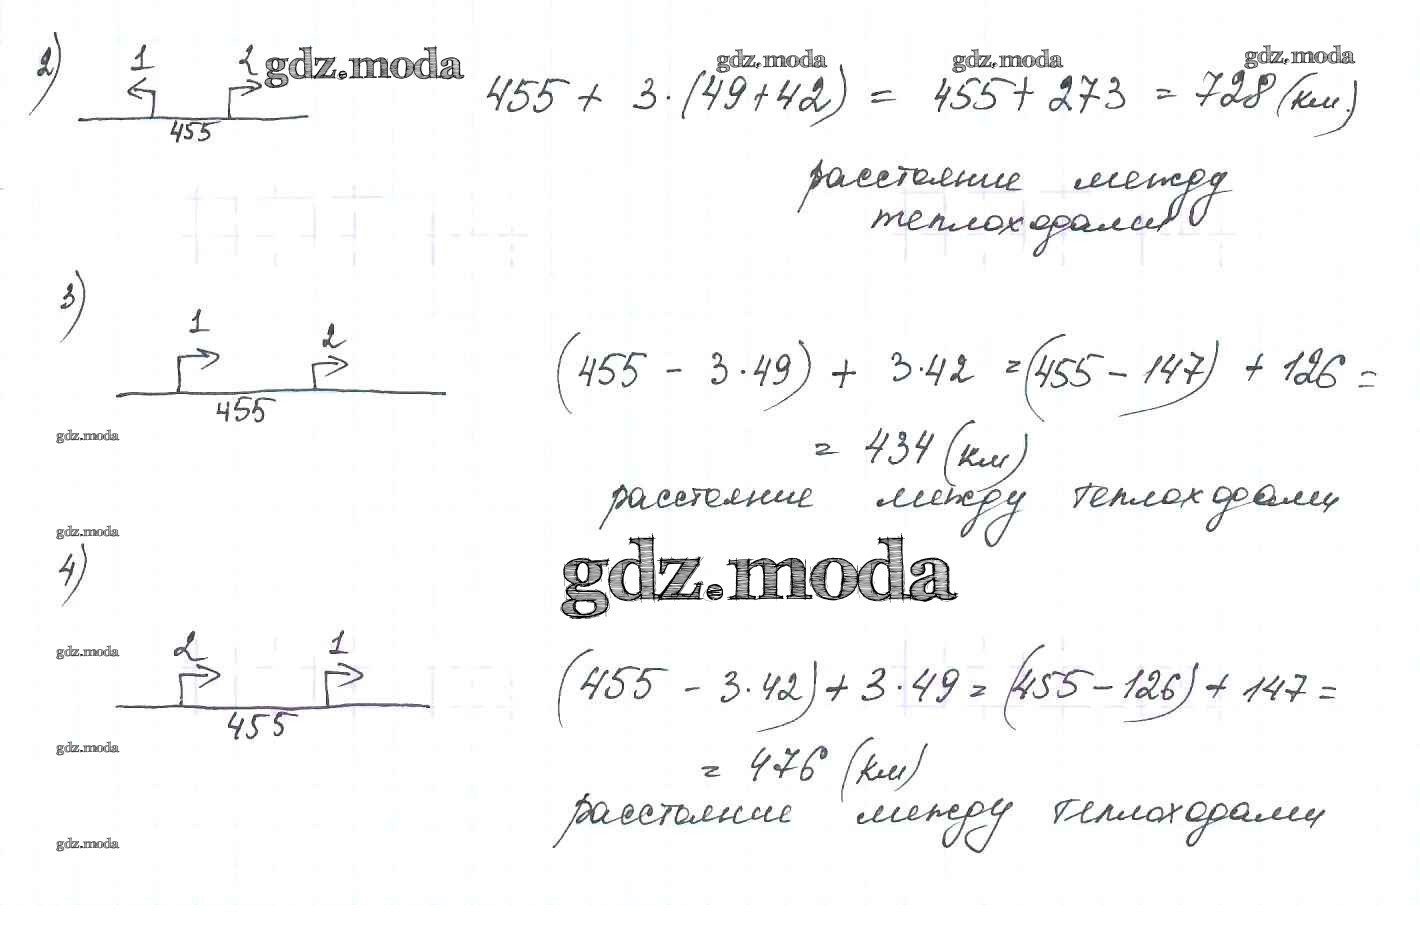 2) 1 2 gdz.moda gdz.moda gdz.moda gdz.moda
455 + 3·(49+42) = 455+273 = 728 (км)
455
расстояние между
теплоходами
3)
1 2
(455 - 3·49) + 3·42 = (455-147) + 126 =
455
gdz.moda
= 434 (км)
расстояние между теплоходами
gdz.moda
4)
gdz.moda
2 1
gdz.moda
(455 - 3·42) + 3·49 = (455-126) + 147 =
455
gdz.moda
= 476 (км)
расстояние между теплоходами
gdz.moda